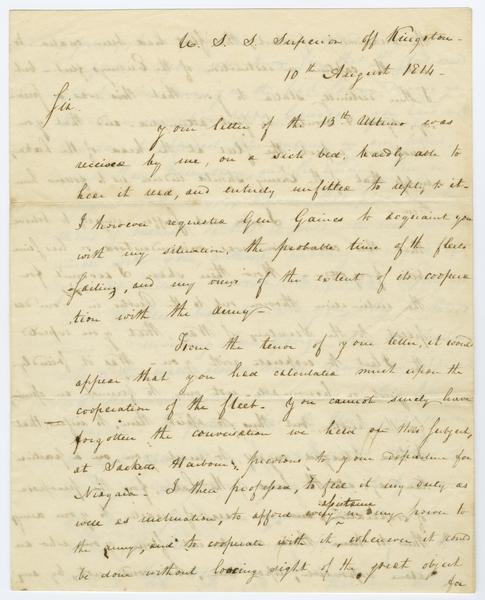 U. S. S. Superior off Kingston-
10th August 1814-
Sir.
your letter of the 13th Ultimo was
received by me, on a sick bed, hardly able to
hear it read, and entirely unfitted to reply to it-
I however requested Genl Gaines to acquaint you
with my situation, the probable time of the fleets
sailing, and my views of the extent of its coopera
tion with the army-
From the tenor of your letter, it would
appear that you had calculated much upon the
cooperation of the fleet- You cannot surely have
forgotten the conversation we held on this Subject,
at Sacketts Harbour, previous to your departure for
Niagara- I then professed, to feel it my duty as
well as inclination, to afford every assistance in my power to
the army, and to cooperate with it, whenever it could
be done without loosing sight of the great object
for